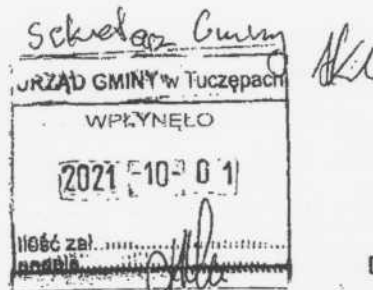 Sekretarz Gminy
URZĄD GMINY w Tuczępach
WPŁYNĘŁO
2021 -10- 01
Ilość zał.